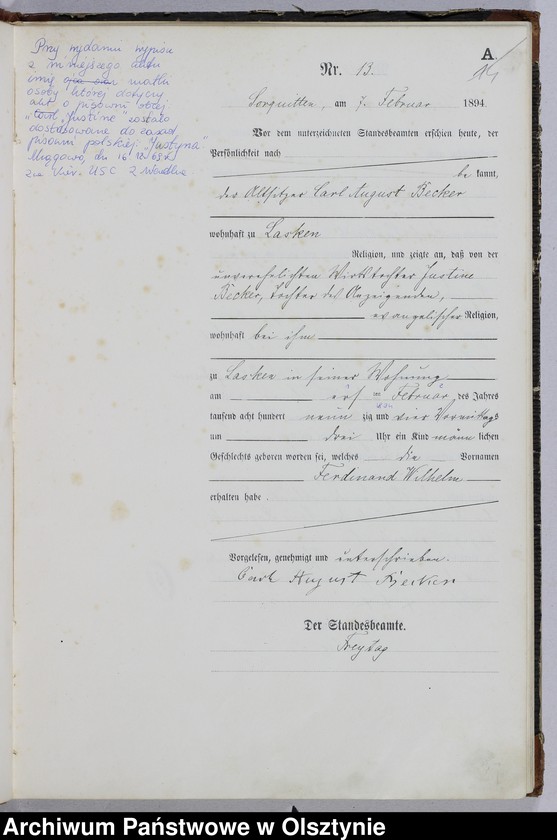 Przy wydaniu wypisu
z niniejszego aktu
imię matki
osoby której dotyczy
akt o pisowni obcej
"Justine" zostało
dostosowane do zasad
pisowni polskiej "Justyna"
Mrągowo, dn. 16.
za Kier. USC
A
Nr. 13.
Sorquitten, am 7. Februar 1894.
Vor dem unterzeichneten Standesbeamten erschien heute, der
Persönlichkeit nach
bekannt,
der Altsitzer Carl August Becker
wohnhaft zu Lasken
Religion, und zeigte an, daß von der
unverehelichten Wirthstochter Justine
Becker, Tochter des Anzeigenden,
evangelischer Religion,
wohnhaft bei ihm
zu Lasken in seiner Wohnung
am Februar des Jahres
tausend acht hundert neunzig und vier Vormittags
um drei Uhr ein Kind männlichen
Geschlechts geboren worden sei, welches die Vornamen
Ferdinand Wilhelm
erhalten habe.
Vorgelesen, genehmigt und unterschrieben.
Carl August Becker
Der Standesbeamte.
Freytag
Archiwum Państwowe w Olsztynie